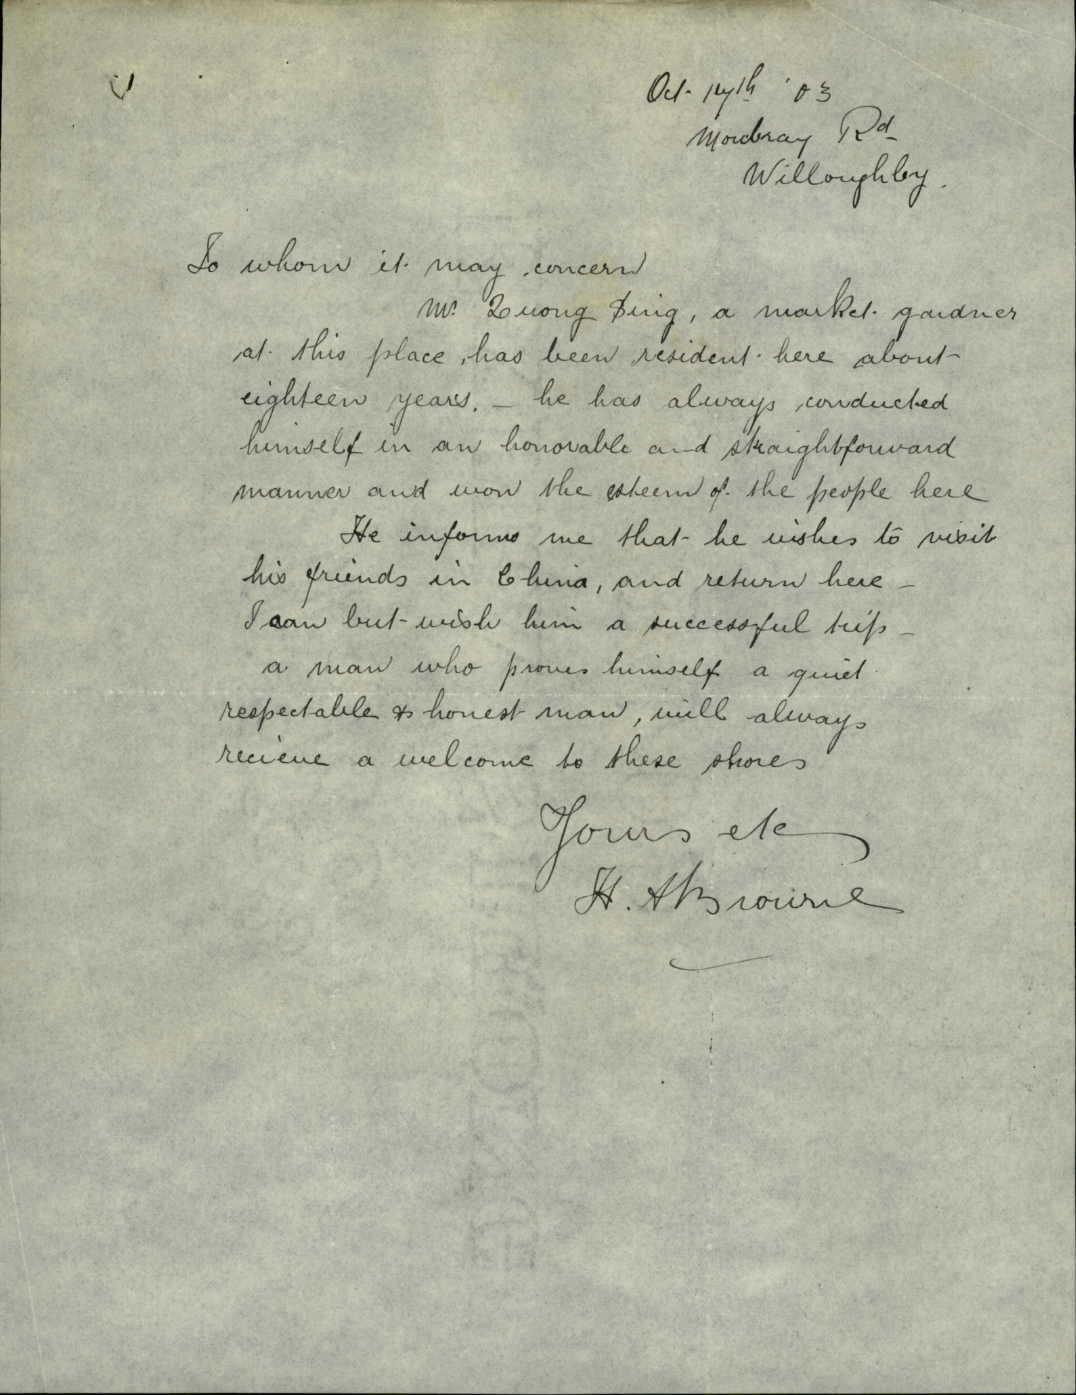 Oct. 14th '03
Mowbray Rd
Willoughby.
To whom it may concern
Mr. Quong Sing, a market gardner
at this place, has been resident here about
eighteen years. – he has always conducted
himself in an honorable and straightforward
manner and won the esteem of the people here
He informs me that he wishes to visit
his friends in China, and return here –
I can but wish him a successful trip –
a man who proves himself a quiet
respectable & honest man, will always
recieve a welcome to these shores
Yours etc
H. A Browne